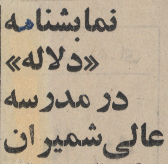 نمایشنامه
«دلاله»
در مدرسه
عالی شمیران